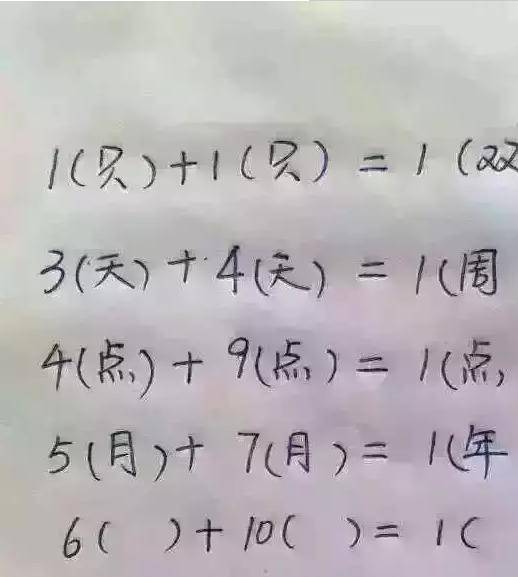 1(只)+1(只)=1(双
3(天)+4(天)=1(周
4(点)+9(点)=1(点
5(月)+7(月)=1(年
6( )+10( )=1(